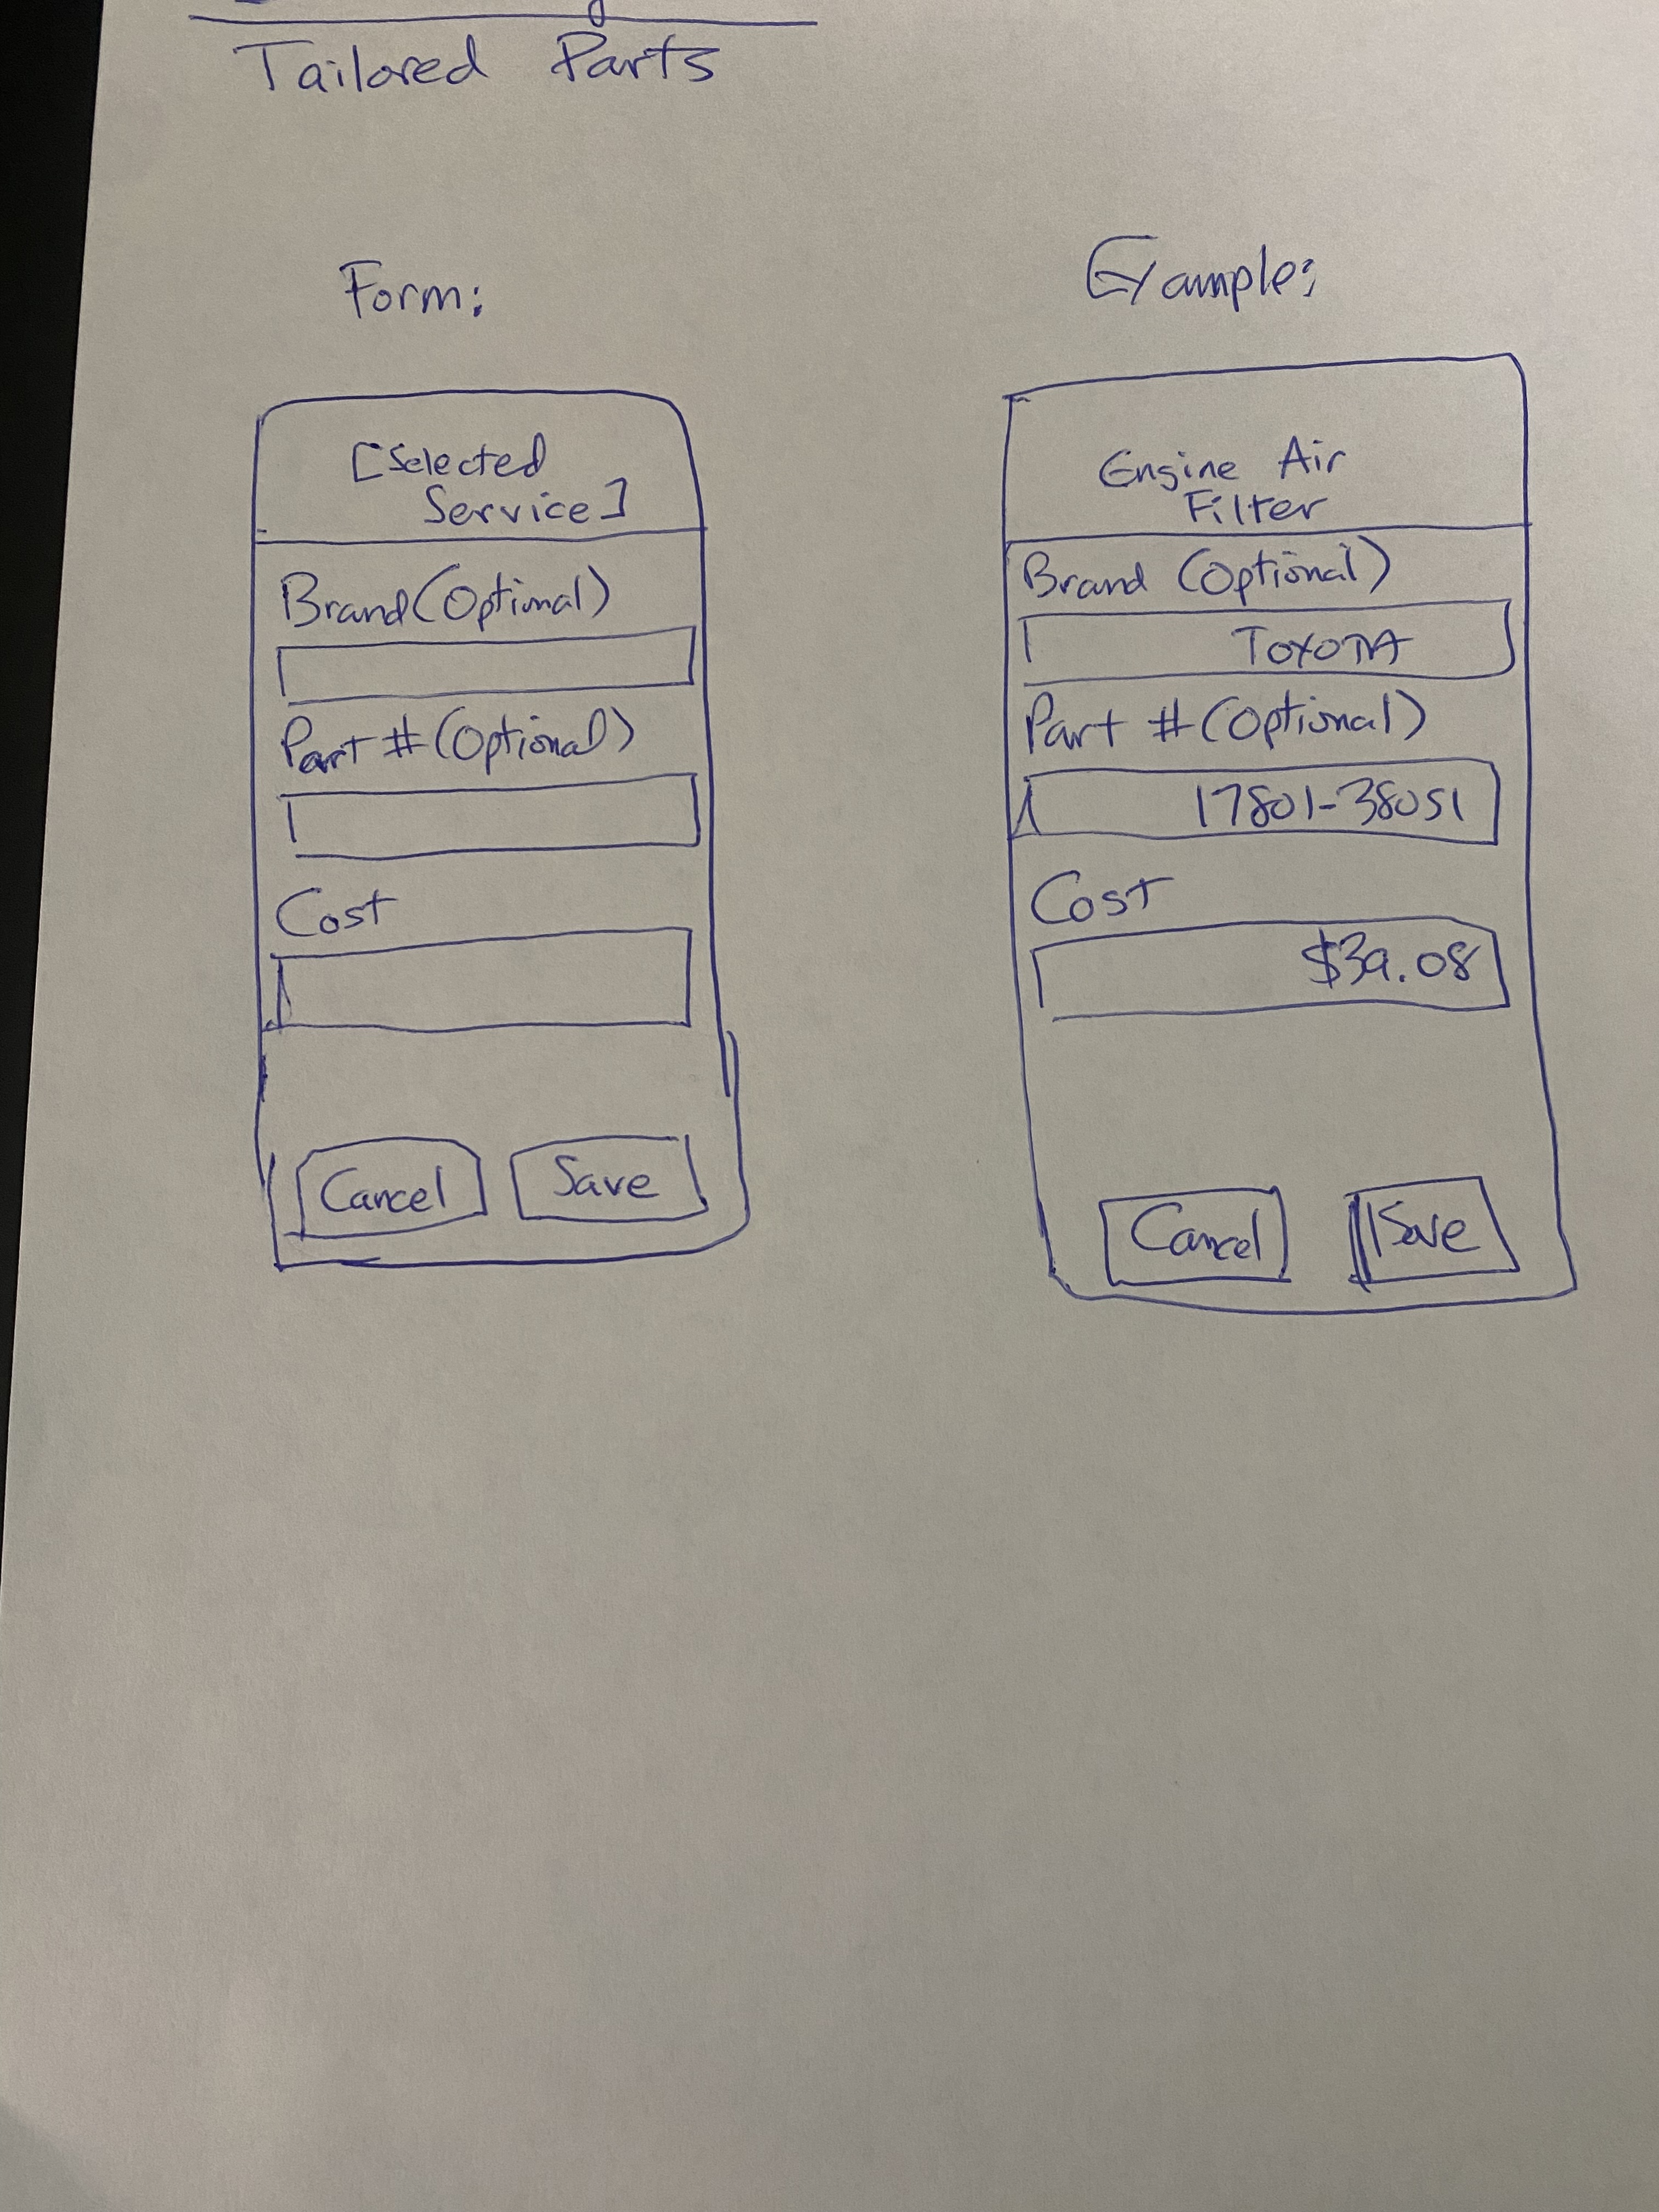 Tailored Parts
Form:
[Selected
Service]
Brand (Optional)
Part # (Optional)
Cost
Cancel
Save
Example:
Engine Air
Filter
Brand (Optional)
TOYOTA
Part # (Optional)
17801-38051
Cost
$39.08
Cancel
Save